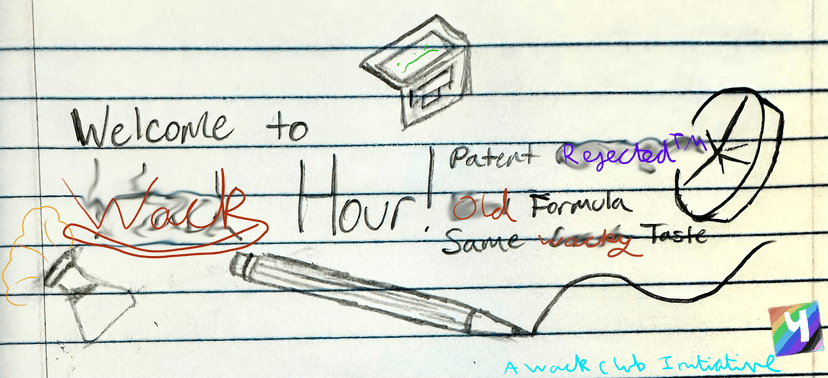 Welcome to
Wack Hour!
Patent Rejected™
Old Formula
Same wacky Taste
4
A wack club Initiative